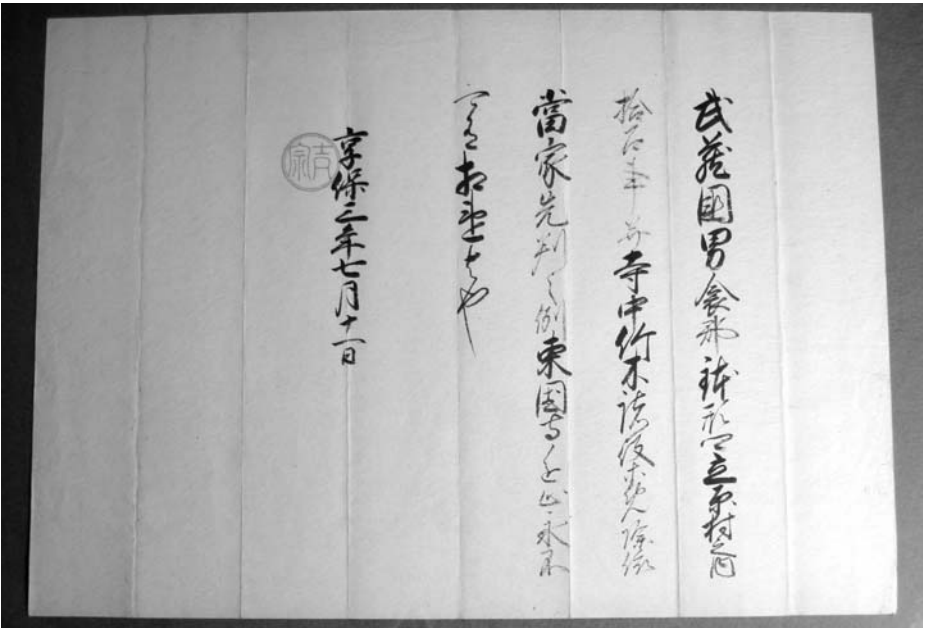 武蔵國男衾郡鉢形口立原村之内
拾石事并寺中竹木諸役等免除依
當家先判之例東国寺進止永不
可有相違者也
享保三年七月十一日
吉宗